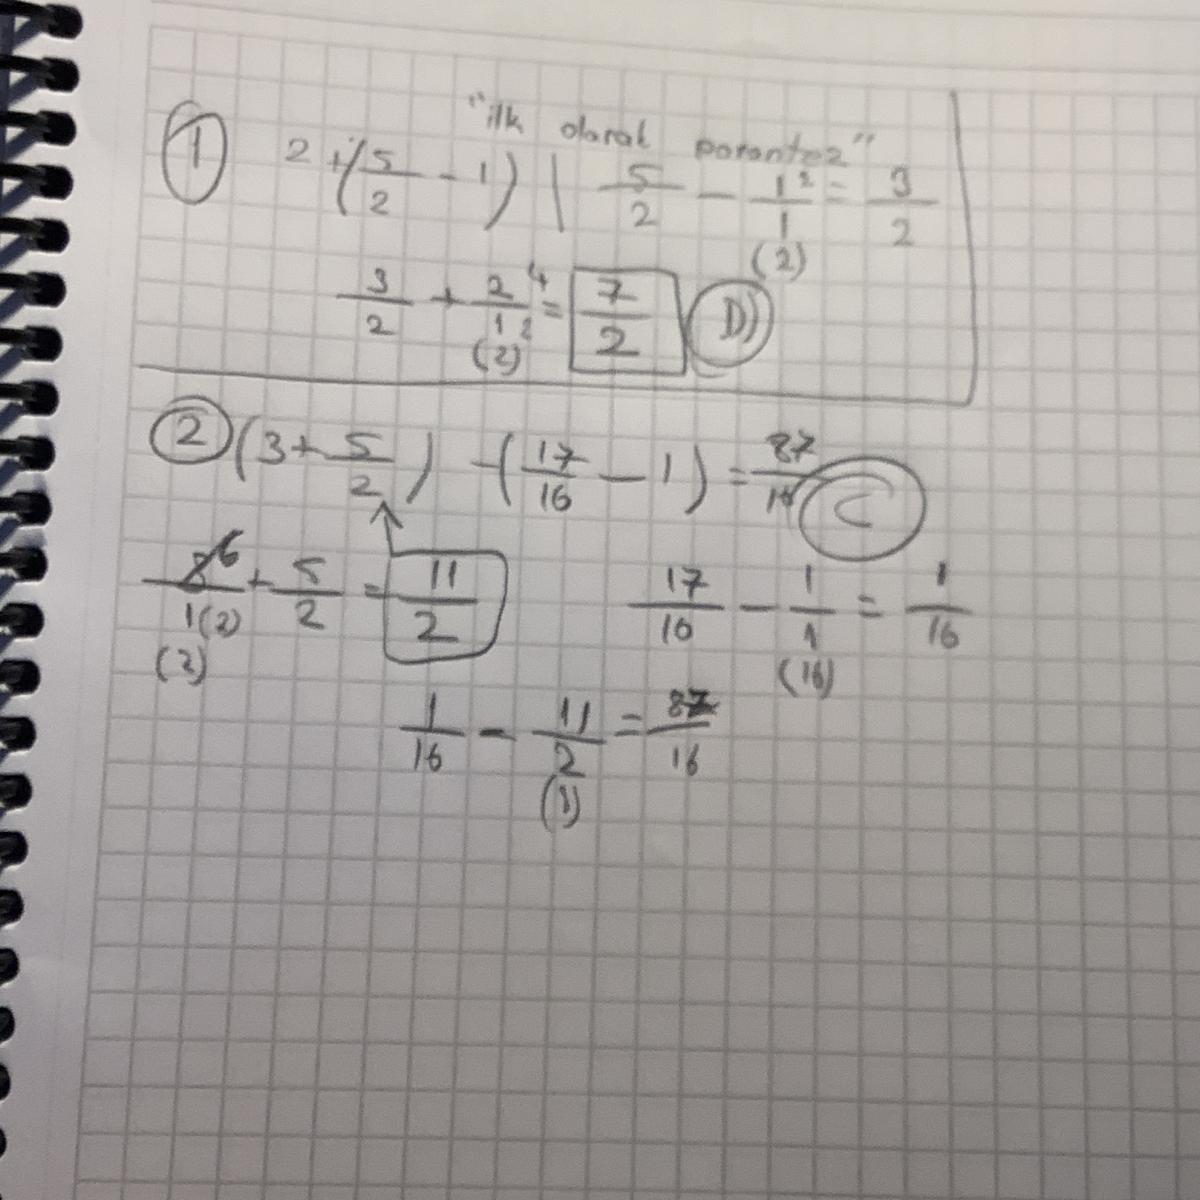 "ilk olarak parantez"
① 2 + (5/2 - 1) | 5/2 - 1²/1 (2) = 3/2
3/2 + 2⁴/1² (2) = 7/2 D)
② (3 + 5/2) - (17/16 - 1) = 87/16 C
6/1(2) (2) + 5/2 = 11/2
17/16 - 1/1 (16) = 1/16
1/16 - 11/2 = 87/16